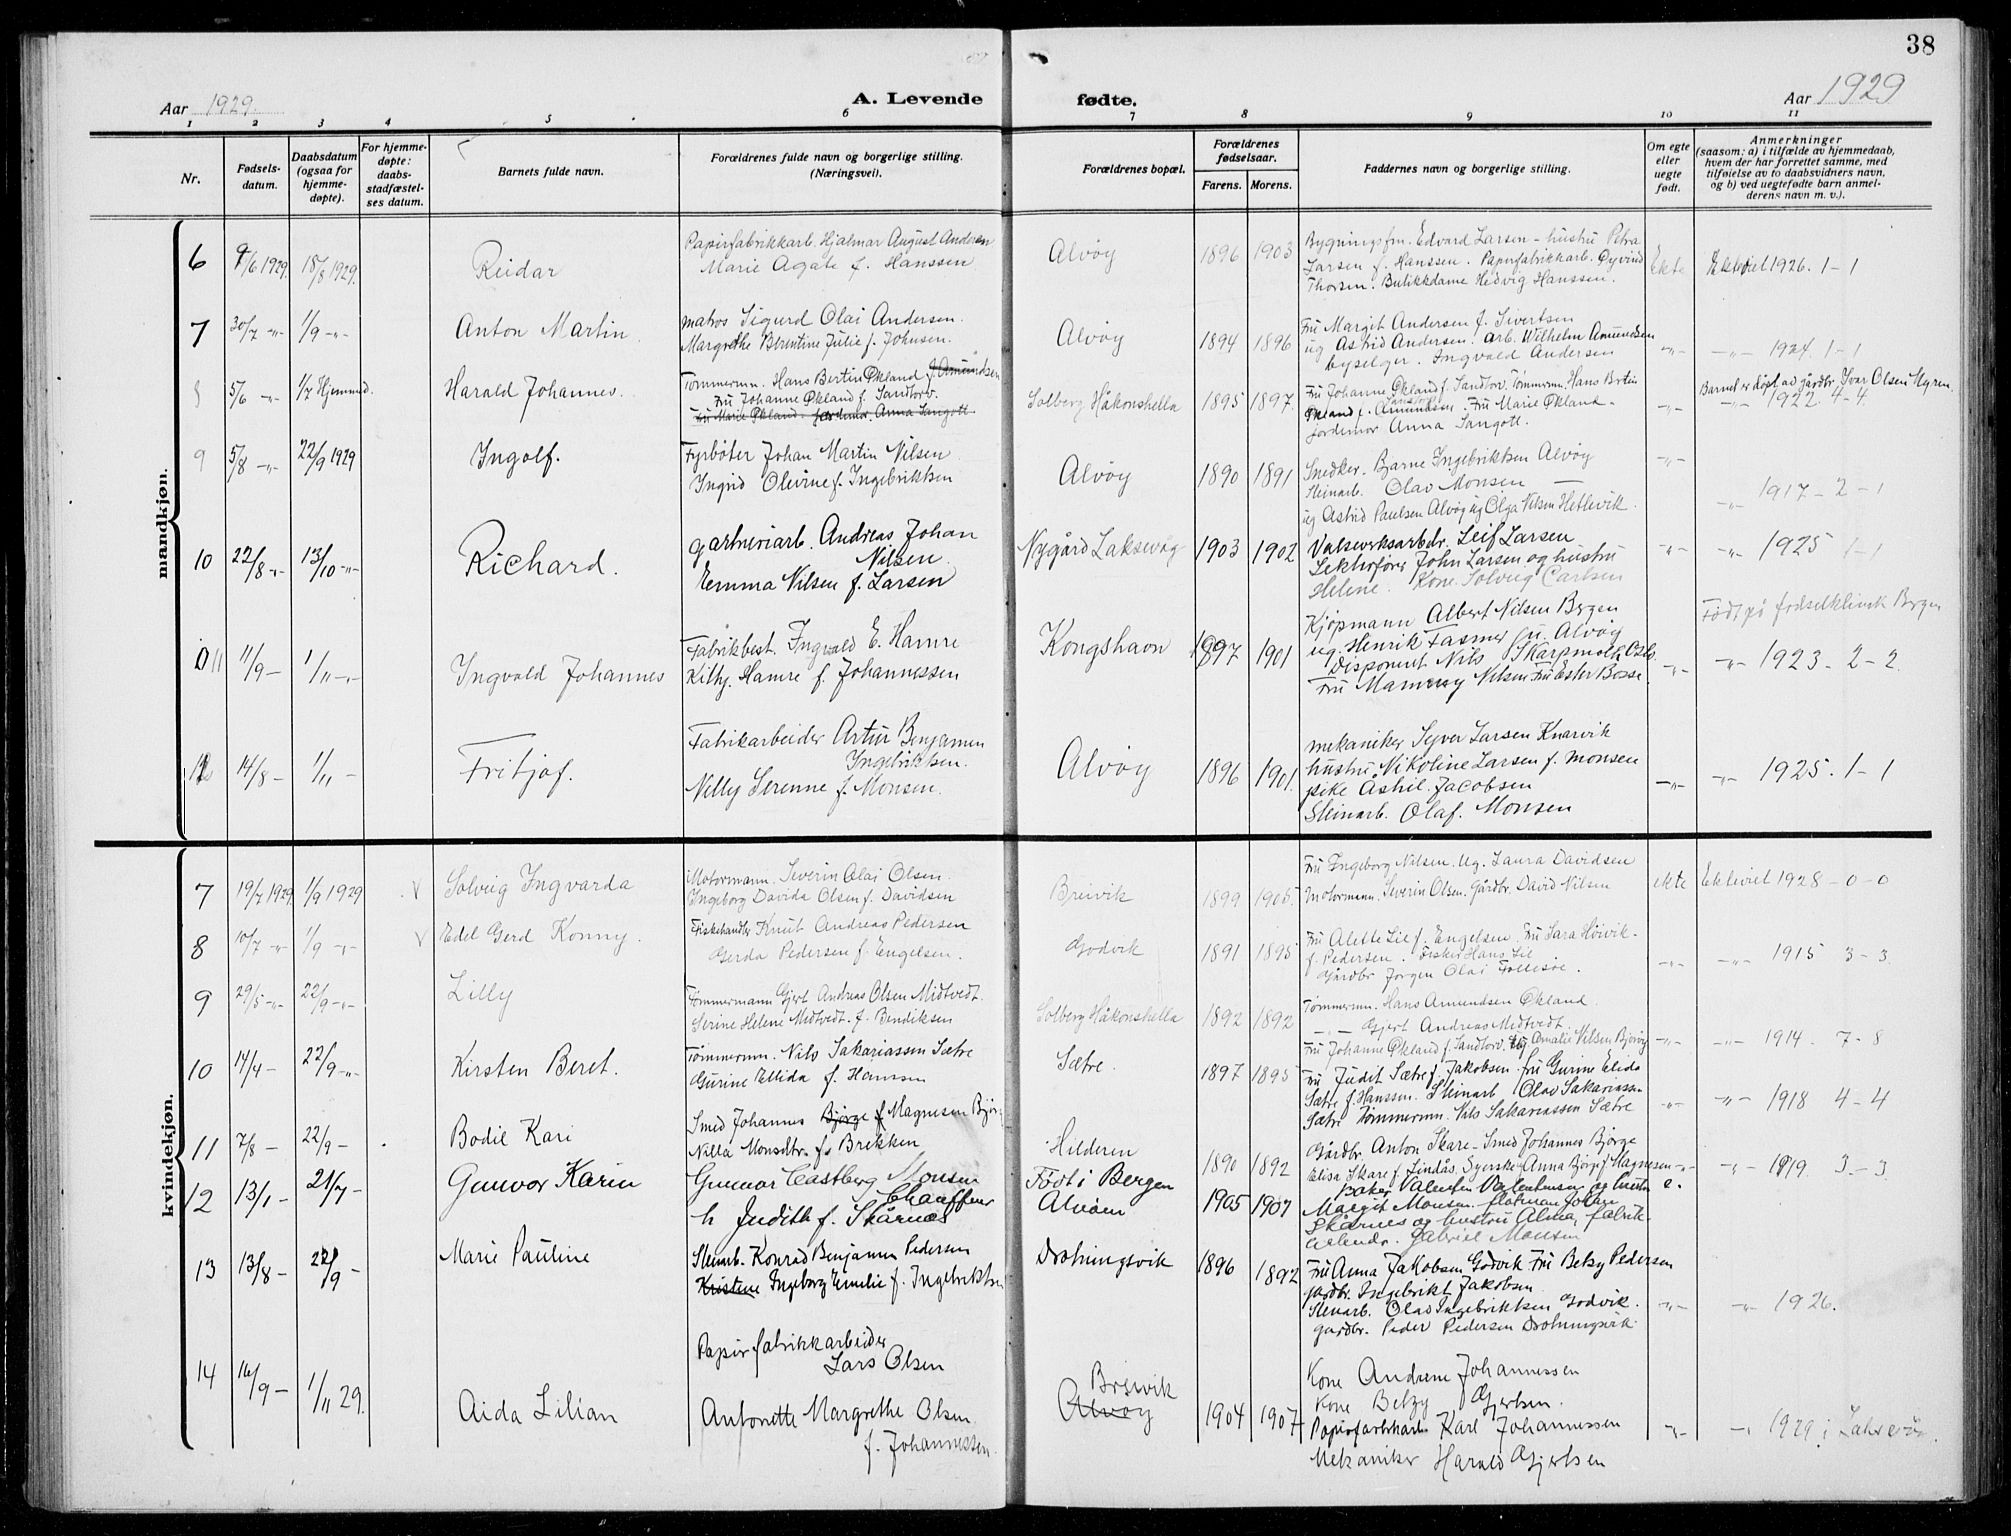 38
Aar 1929.
A. Levende fødte.
Aar 1929
1 2 3 4 5 6 7 8 9 10 11
Nr.
Fødsels-
datum.
Daabsdatum
(ogsaa for
hjemme-
døpte).
For hjemme-
døpte:
daabs-
stadfæstel-
ses datum.
Barnets fulde navn.
Forældrenes fulde navn og borgerlige stilling.
(Næringsvei).
Forældrenes bopæl.
Forældrenes
fødselsaar.
Farens. Morens.
Faddernes navn og borgerlige stilling.
Om egte
eller
uegte
født.
Anmerkninger
(saasom: a) i tilfælde av hjemmedaab,
hvem der har forrettet samme, med
tilføielse av to daabsvidners navn,
og b) ved uegtefødte barn anmel-
derens navn m. v.).
mandkjøn.
6 9/6 1929. 18/8 1929. Reidar
Papirfabrikkarb. Hjalmar August Andersen
Marie Agate f. Hanssen
Alvøy 1896 1903
Bygningsfm. Edvard Larsen - hustru Petra
Larsen f. Hanssen. Papirfabrikkarb. Øyvind
Thorsen. Butikkdame Hedvig Hanssen.
Ekte Ekteviet 1926. 1-1
7 30/7 -"- 1/9 -"- Anton Martin
Matros Sigurd Olai Andersen.
Margrethe Berntine Julie f. Johnsen.
Alvøy 1894 1896
Fru Margit Andersen f. Sivertsen
ug Astrid Andersen. arb. Wilhelm Amundsen
byselger. Ingvald Andersen
-"- -"- 1924. 1-1
8 5/6 -"- 1/7 Hjemmed. Harald Johannes.
Tømmermn. Hans Bertin Økland f. Amundsen
Fru Johanne Økland f. Sandtorv.
Fru Marie Økland. Jordemor. Anna Sangolt
Solberg Håkonshella 1895 1897.
Fru Johanne Økland f. Sandtorv. Tømmermn. Hans Bertin
Økland f. Amundsen. Fru Marie Økland -
Jordemor Anna Sangolt.
-"- Barnet er døpt av gårdbr. Ivar Olsen Myren.
-"- 1922. 4-4
9 5/8 -"- 22/9 1929 Ingolf.
Fyrbøter Johan Martin Nilsen
Ingrid Olevine f. Ingebriktsen
Alvøy 1890 1891
Snedker. Bjarne Ingebriktsen Alvøy
Steinarb. Olav Monsen —
ug Astrid Paulsen Alvøy ug Olga Nilsen Hetlevik.
-"- -"- 1917 - 2 - 1
10 22/8 -"- 13/10 -"- Richard.
Gartneriarb. Andreas Johan
Nilsen.
Emma Nilsen f. Larsen
Nygård Laksevåg 1903 1902
Valseverksarbdr. Leif Larsen
Lektorfører John Larsen og hustru
Helene. Kone. Solveig Carlsen
-"- -"- 1925 1-1
11 11/9 - 1/11 -"- Ingvald Johannes
Fabrikbest. Ingvald E. Hamre
Kitty. Hamre f. Johannessen
Kongshavn 1897 1901
Kjøpmann Albert Nilsen Bergen
ug. Henrik Fasmer ju. Alvøy
Disponent Nils Skarpmoth Oslo.
Fru Mammy Nilsen Fru Ester Bosse.
-"- Født på fødselklinik Bergen
-"- 1923 - 2 - 2.
12 14/8 - 1/11 - Fritjof.
Fabrikarbeider Artur Benjamin
Ingebriktsen.
Nelly Serenne f. Monsen.
Alvøy 1896 1901.
mekaniker Syver Larsen Knarvik
hustru Nikoline Larsen f. Monsen
pike Åshil. Jacobsen
Steinarb. Olaf. Monsen
-"- -"- 1925. 1-1
kvindekjøn.
7 19/7 1929. 1/9 1929 V Solveig Ingvarda
Motormann. Severin Olai Olsen.
Ingeborg Davida Olsen f. Davidsen
Breivik 1899 1905.
Fru Ingeborg Nilsen. Ug. Laura Davidsen
Motormann. Severin Olsen. Gårdbr. David Nilsen
ekte Ekteviet 1928 - 0 - 0
8 10/7 -"- 1/9 -"- V Edel Gerd Konny.
Fiskehandler Knut Andreas Pedersen
Gerda Pedersen f. Engelsen.
Godvik 1891 1895
Fru Alette Lie f. Engelsen. Fru Sara Høivik -
f. Pedersen. Fisker Hans Lie
Gårdbr Jørgen Olai Follesøe.
-"- -"- 1915 3-3
9 29/5 -"- 22/9 -"- Lilly
Tømmermann Gjert Andreas Olsen Midtvedt.
Serine Helene Midtvedt. f. Bendiksen
Solberg Håkonshella 1892 1892
Tømmermn. Hans Amundsen Økland.
-"- Gjert Andreas Midtvedt
Fru Johanne Økland f. Sandtorv. Ug Amalie Nilsen Bjorøy
-"- -"- 1914. 7-8
10 14/4 - 22/9 -"- Kirsten Beret.
Tømmermn. Nils Sakariassen Sætre
Gurine Ellida f. Hanssen
Sætre. 1897 1895
Fru Judit Sætre f. Jakobsen. fru Gurine Elida
Sætre f. Hanssen. Steinarb Olav Sakariassen
Sætre Tømmermn. Nils Sakariassen Sætre
-"- -"- 1918 4-4
11 7/8 - 22/9 - Bodil Kari
Smed Johannes Bjørge f Magnesen Bjør
Nilla Monsdtr. f. Brekken
Hilderen 1890 1892
Gårdbr. Anton Skare - Smed Johannes Bjørge
Elisa Skare f. Lindås. Syerske Anna Bjørge f. Magnesen
-"- -"- 1919. 3-3
12 13/1 - 21/7 - Gunvor Karin
Gunnar Castberg Monsen
Chauffeur
h Judith f. Skårnes
Født i Bergen
Alvøen 1905 1907
Baker Valentin Valentinsen og hustru
Margit Monsen. Formann Johan
Skårnes og hustru Alma, fabrik-
arbeidr. Gabriel Monsen
e.
13 13/8 - 22/9 - Marie Pauline
Steinarb. Konrad Benjamin Pedersen
Kristene Ingeborg Emelie f. Ingebriktsen
Drotningsvik 1896 1892
Fru Anna Jakobsen Godvik Fru Betsy Pedersen
gårdbr. Ingebrikt Jakobsen
Steinarb. Olav Ingebriktsen Godvik.
gardbr. Peder Pedersen Drotningsvik.
-"- -"- 1926.
14 16/9 - 1/11 29. Aida Lilian
Papir fabrikkarbeider
Lars Olsen
Antonette Margrethe Olsen
f. Johannessen.
Breivik
Alvøy 1904 1907
Kone Andrine Johannessen
Kone Betzy Gjertsen.
Papirfabrikarb. Karl Johannessen
Mekaniker Harald Gjertsen
-"- -"- 1929 i Laksevåg.